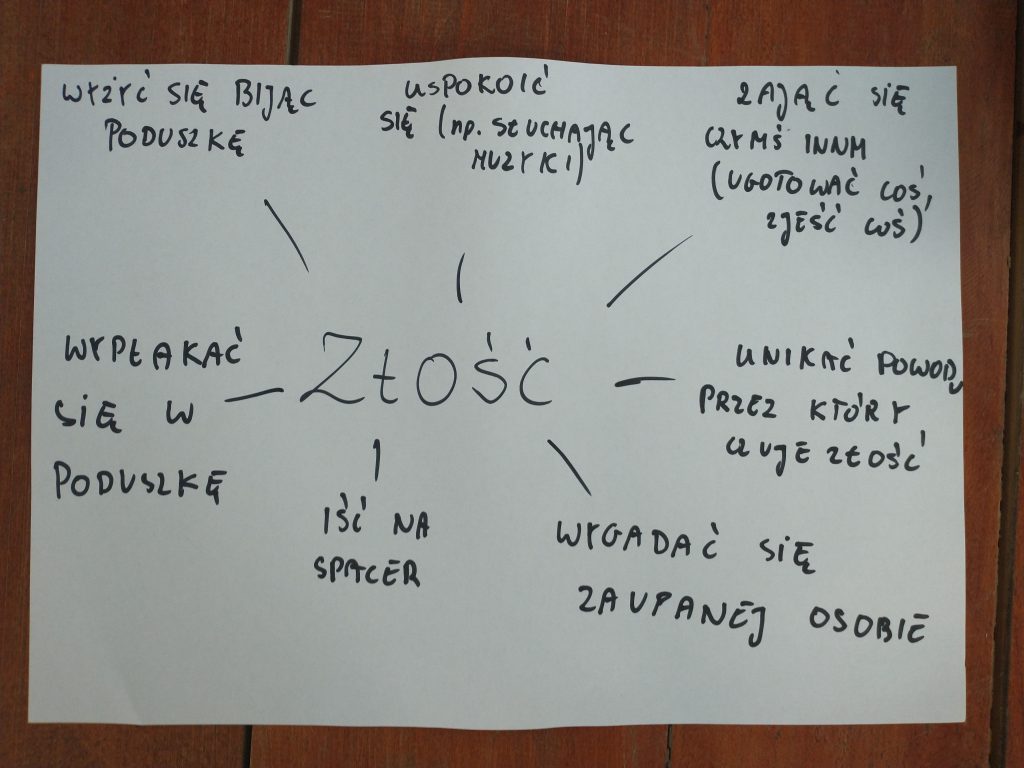 WYŻYĆ SIĘ BIJĄC
PODUSZKĘ
USPOKOIĆ
SIĘ (np. SŁUCHAJĄC
MUZYKI)
ZAJĄĆ SIĘ
CZYMŚ INNM
(UGOTOWAĆ COŚ,
ZJEŚĆ COŚ)
WYPŁAKAĆ
SIĘ W
PODUSZKĘ
ZŁOŚĆ
UNIKAĆ POWODU
PRZEZ KTÓRY
CZUJE ZŁOŚĆ
IŚĆ NA
SPACER
WYGADAĆ SIĘ
ZAUPANEJ OSOBIE